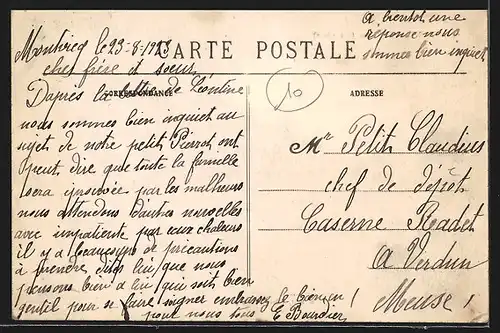 a bientot une
reponse nous
sommes bien inquiet
Montvicq le 23-8-1923
CARTE POSTALE
cher frère et soeur
Dapres la lettre de Léontine
CORRESPONDANCE
nous sommes bien inquiet au
sujet de notre petit Pierrot ont
peut dire que toute la famille
sera éprouvée par les malheurs
nous attendons d'autres nouvelles
avec impatient par ceux chaleurs
il y a beaucoups de précautions
à prendre dites lui que nous
pensons bien à lui qui soit bien
gentil pour se faire soigner embrassez le bien
pour nous E Bourdier
10
ADRESSE
Mr Petit Claudius
chef de dépôt
Caserne Radet
a Verdun
Meuse !